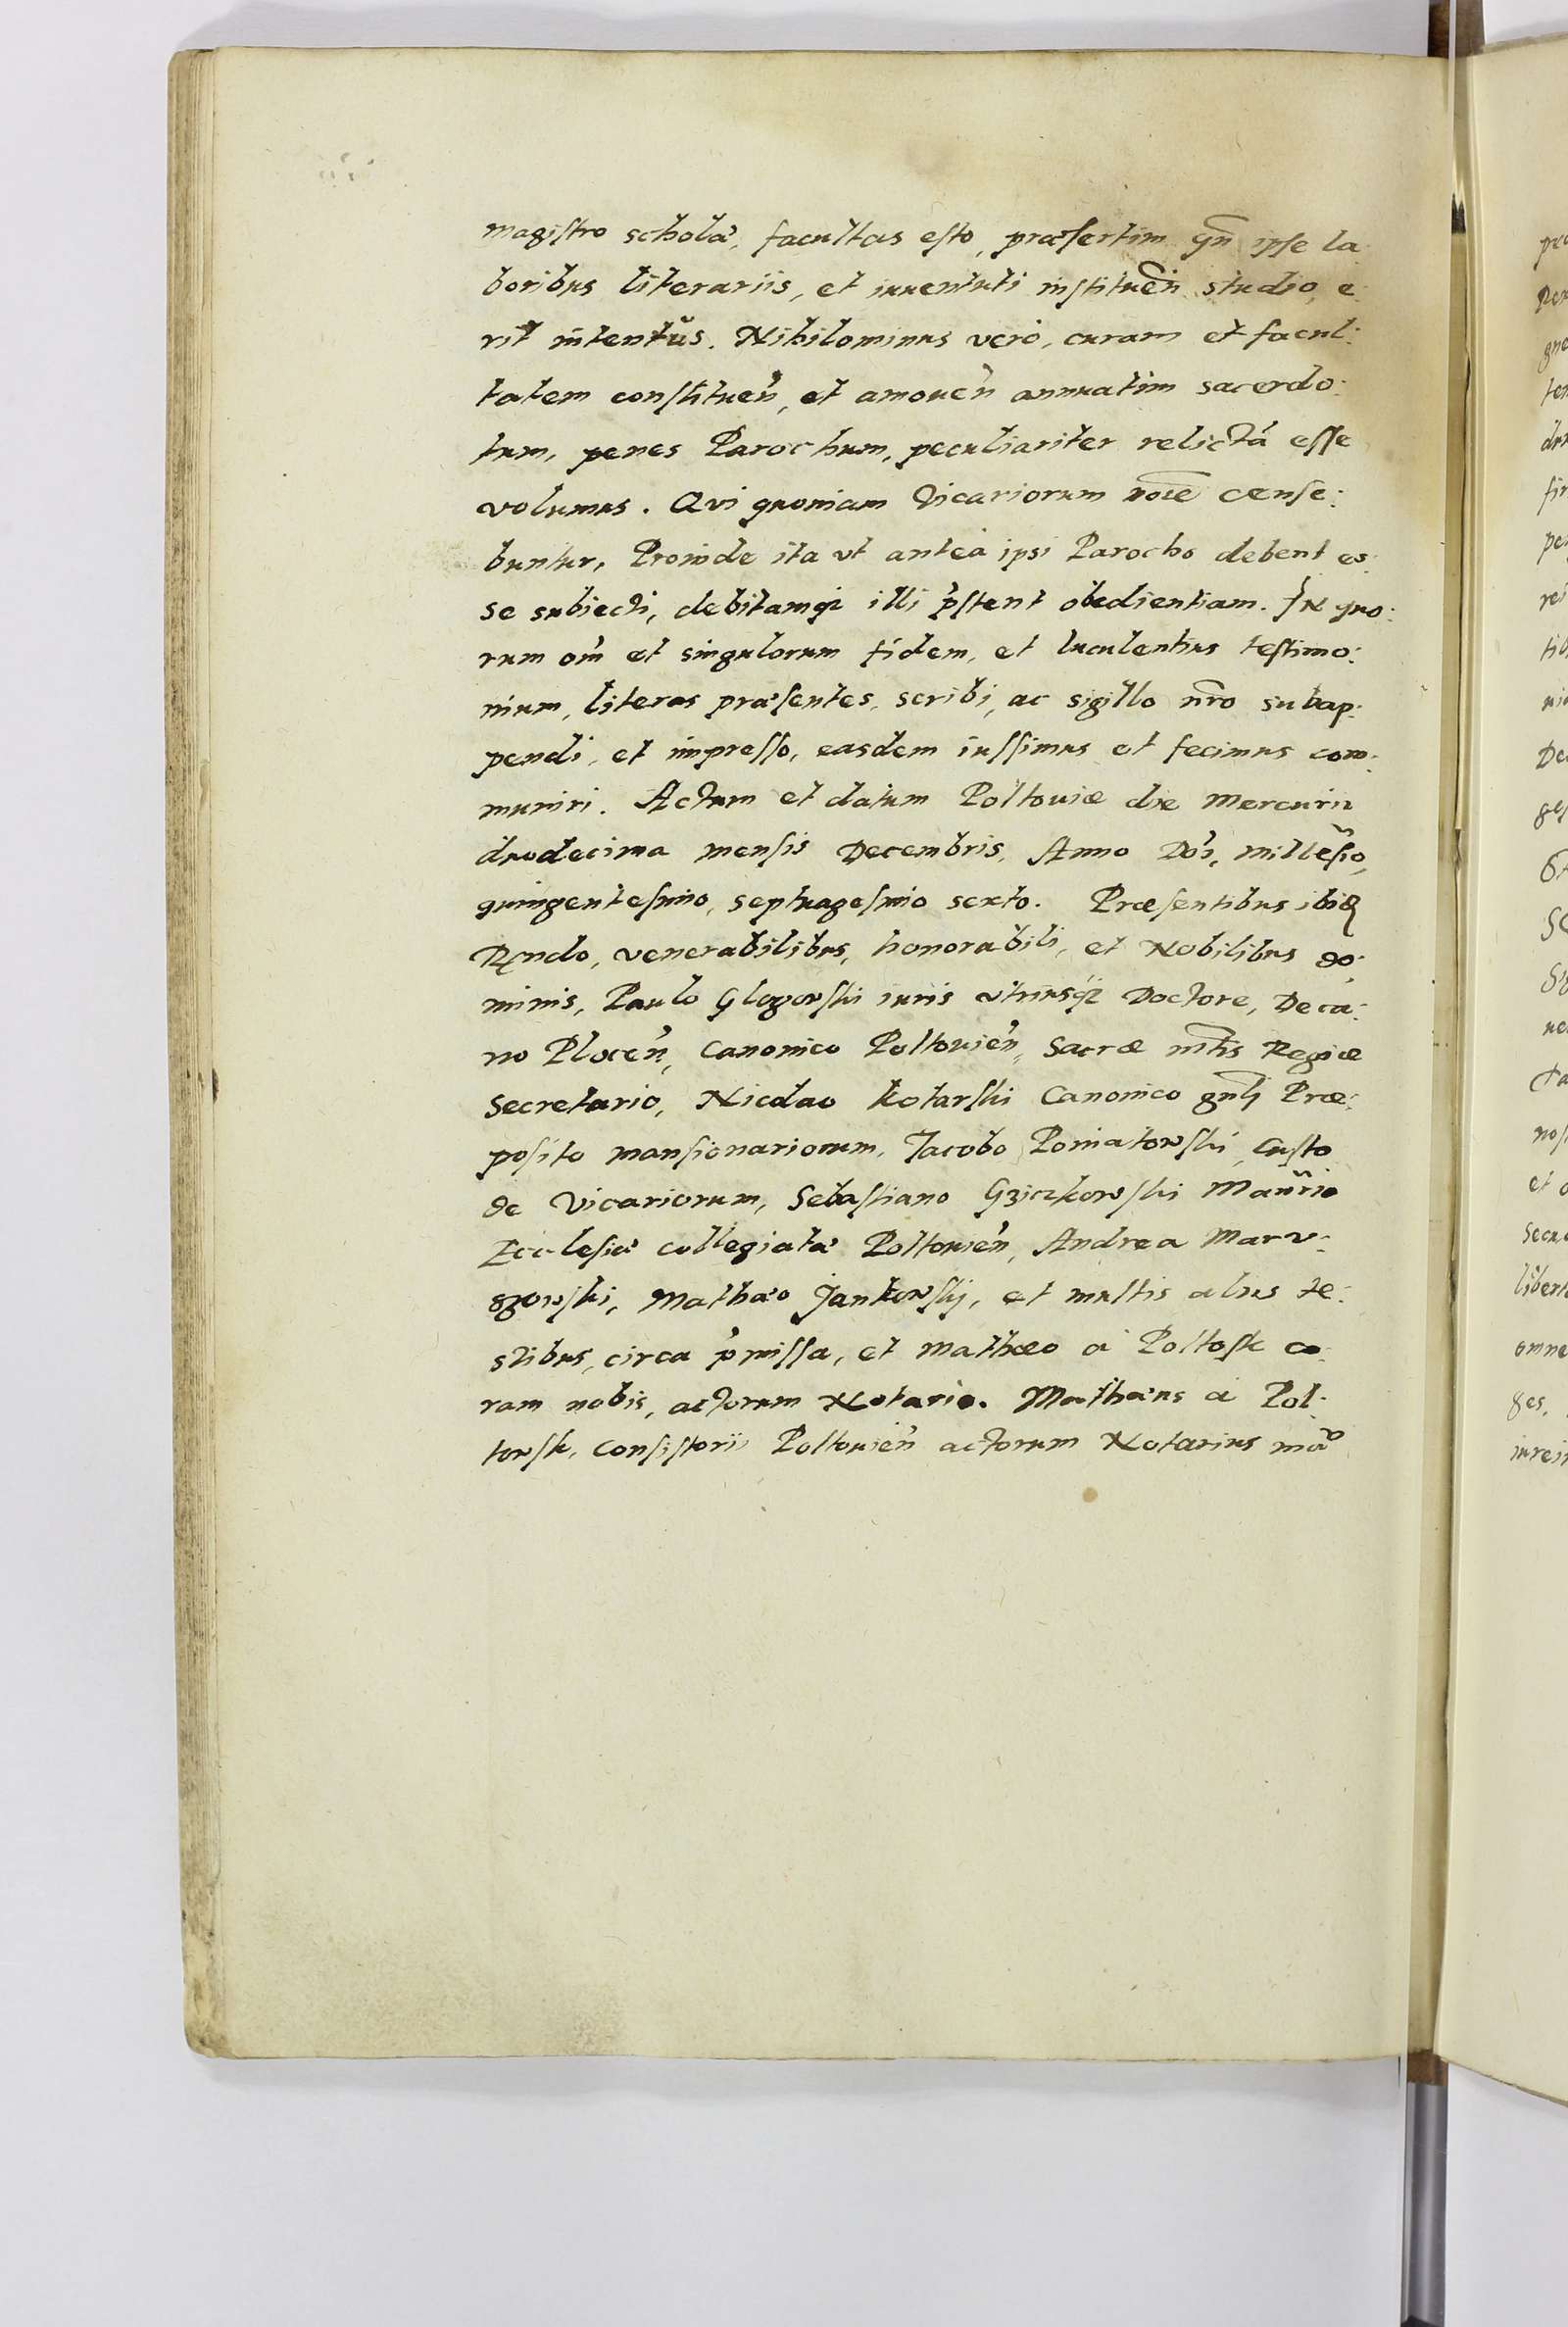 magistro scholæ, facultas esto, præsertim qñ ipse la
boribus literariis, et iuuentuti instituen̄ studio, e:
rit intentus. Nihilominus vero, curam et facul:
tatem constituen̄, et amouen̄ annuatim sacerdo:
tum, penes Parochum, peculiariter relictā esse
volumus. Qvi quoniam Vicariorum noīe cense:
buntur, Proinde ita vt antea ipsi Parocho debent es:
se subiecti, debitamq; illi p̄stent obedientiam. IN quo:
rum om̄ et singulorum fidem, et luculentius testimo:
nium, literas præsentes, scribi, ac sigillo nr̄o subap:
pendi, et impresso, easdem iussimus et fecimus com:
muniri. Actum et datum Poltouiæ die Mercurii
duodecima mensis Decembris, Anno Dn̄i, millēsio,
quingentesimo, septuagesimo sexto. Præsentibus ibid
Rndo, venerabilibus, honorabili, et Nobilibus do:
minis, Paulo Glogowski iuris vtriusq; Doctore, Deca:
no Plocen̄, Canonico Poltouien̄, Sacræ mt̄is Regiæ
Secretario, Nicolao Kotarski Canonico gnli Præ:
posito mansionariorum, Jacobo Poniatowski, Custo
de Vicariorum, Sebastiano Gziczkowski Man̄rio
Ecclesiæ collegiatæ Poltouien̄, Andrea Mar
Mathæo Jankowskj, et multis aliis te:
stibus, circa p̄missa, et Mathæo a Poltosk co
ram nobis, actorum Notario. Mathæus a Pol:
towsk, Consistorii Poltouien̄ actorum Notarius